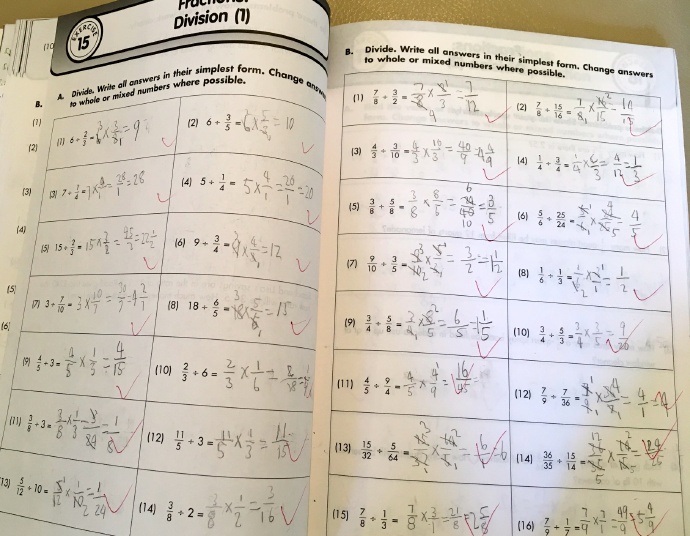 Fractions:
Division (1)
EXERCISE
15
A. Divide. Write all answers in their simplest form. Change answers
to whole or mixed numbers where possible.
(1) 6 ÷ 2/3 =
(2) 6 ÷ 3/5 = 10
(3) 7 ÷ 1/4 = 28/1 = 28
(4) 5 ÷ 1/4 = 5 × 4/1 = 20/1 = 20
(5) 15 ÷ 2/3 = 15 × 3/2 = 45/2 = 22 1/2
(6) 9 ÷ 3/4 = 12
(7) 3 ÷ 7/10 = 3 × 10/7 = 30/7 = 4 2/7
(8) 18 ÷ 6/5 = 15
(9) 4/5 ÷ 3 = 4/5 × 1/3 = 4/15
(10) 2/3 ÷ 6 = 2/3 × 1/6 =
(11) 3/8 ÷ 3 = 3/8 × 1/3 = 1/8
(12) 11/5 ÷ 3 = 11/5 × 1/3 = 11/15
(13) 5/12 ÷ 10 = 1/24
(14) 3/8 ÷ 2 = 3/8 × 1/2 = 3/16
B. Divide. Write all answers in their simplest form. Change answers
to whole or mixed numbers where possible.
(1) 7/8 ÷ 3/2 = 7/12
(2) 7/8 ÷ 15/16 =
(3) 4/3 ÷ 3/10 = 4/3 × 10/3 = 40/9 = 4 4/9
(4) 1/4 ÷ 3/4 = 4/12 = 1/3
(5) 3/8 ÷ 5/8 = 3/5
(6) 5/6 ÷ 25/24 = 4/5
(7) 9/10 ÷ 3/5 = 3/2 = 1 1/2
(8) 1/6 ÷ 1/3 = 1/2
(9) 3/4 ÷ 5/8 = 6/5 = 1 1/5
(10) 3/4 ÷ 5/3 = 3/4 × 3/5 = 9/20
(11) 4/5 ÷ 9/4 = 4/5 × 4/9 = 16/45
(12) 7/9 ÷ 7/36 = 4/1 =
(13) 15/32 ÷ 5/64 = 6/1 = 6
(14) 36/35 ÷ 15/14 =
(15) 7/8 ÷ 1/3 = 7/8 × 3/1 = 21/8 = 2 5/8
(16) 7/9 ÷ 1/7 = 7/9 × 7/1 = 49/9 = 5 4/9